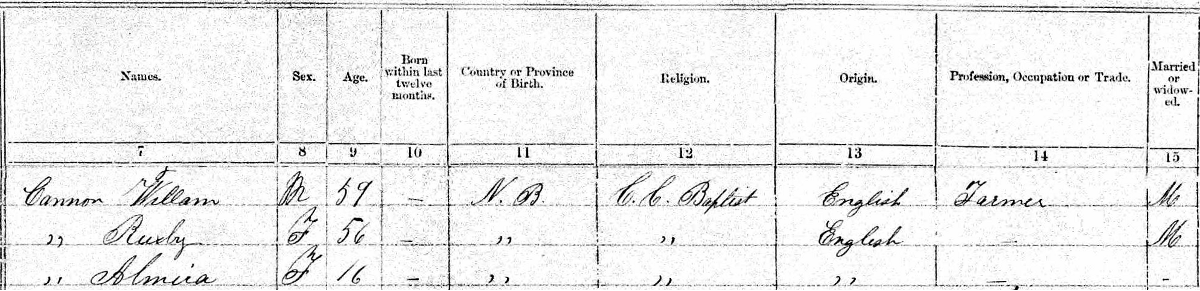 Names. Sex. Age. Born within last twelve months. Country or Province of Birth. Religion. Origin. Profession, Occupation or Trade. Married or widow-ed.
7 8 9 10 11 12 13 14 15
Cannon Willam M 59 — N. B. C. C. Baptist English Farmer M
,, Ruxby F 56 — ,, ,, English — M
,, Almira F 16 — ,, ,, ,, — -